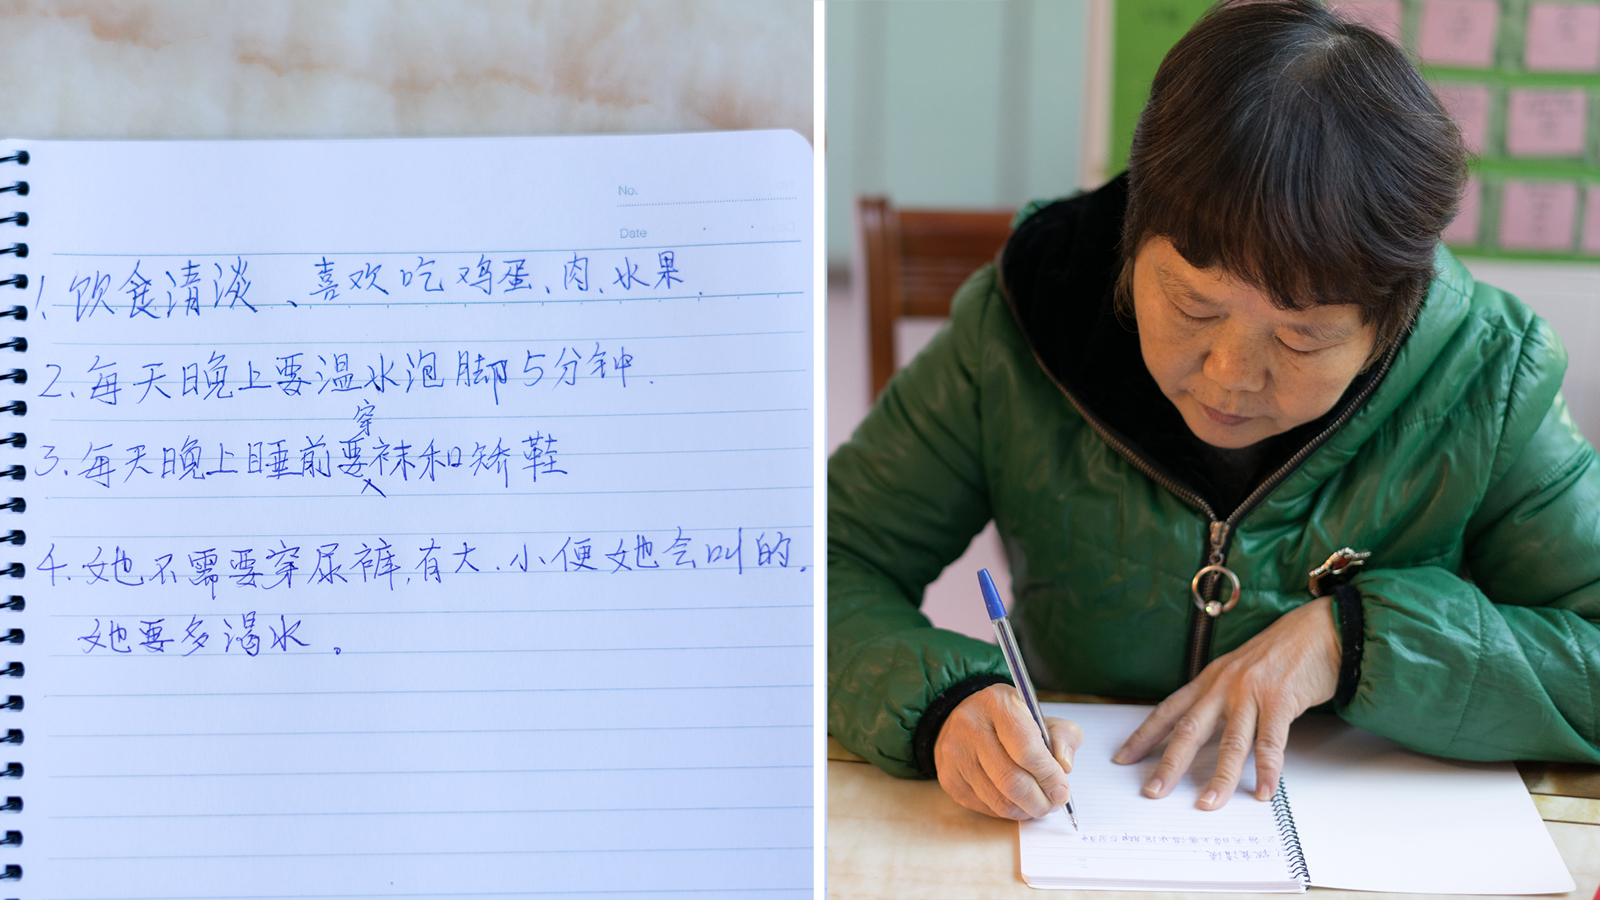 No.
Date
1. 饮食清淡、喜欢吃鸡蛋、肉、水果.
2. 每天晚上要温水泡脚5分钟.
穿
3. 每天晚上睡前要袜和矫鞋
4. 她不需要穿尿裤,有大.小便她会叫的.
她要多渴水。